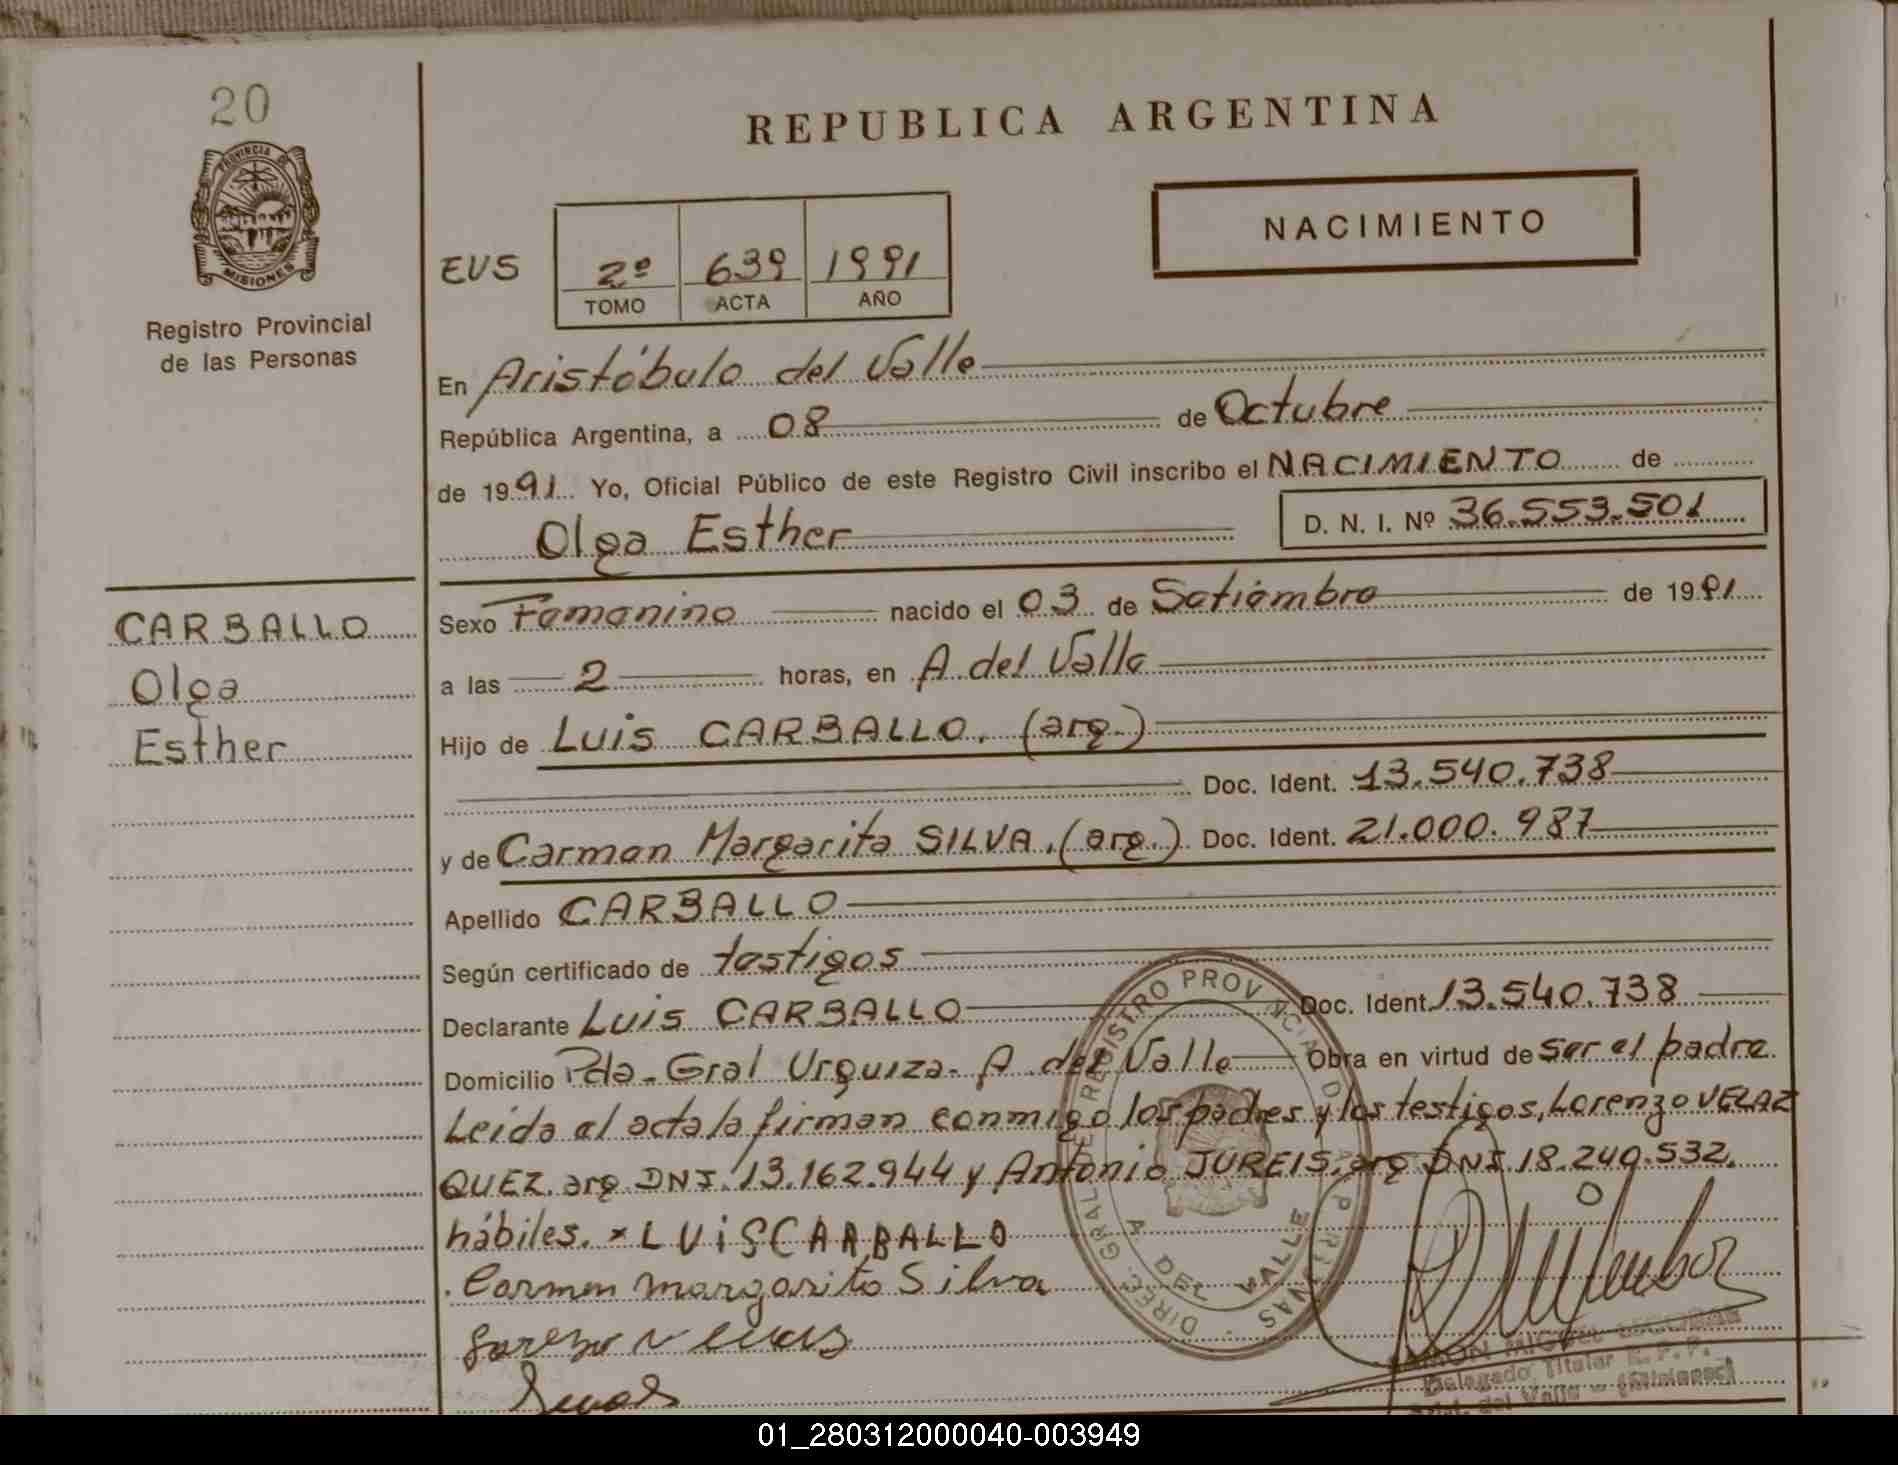 20
PROVINCIA DE
MISIONES
Registro Provincial
de las Personas
REPUBLICA ARGENTINA
NACIMIENTO
EUS 2º 639 1991
TOMO ACTA AÑO
En Aristóbulo del Valle
República Argentina, a 08 de Octubre
de 1991 Yo, Oficial Público de este Registro Civil inscribo el NACIMIENTO de
Olga Esther D. N. I. Nº 36.553.501
CARBALLO
Olga
Esther
Sexo Femenino nacido el 03 de Setiembre de 1991
a las 2 horas, en A. del Valle
Hijo de Luis CARBALLO. (arg.)
Doc. Ident. 13.540.738
y de Carmen Margarita SILVA. (arg.) Doc. Ident. 21.000.987
Apellido CARBALLO
Según certificado de testigos
Declarante Luis CARBALLO Doc. Ident. 13.540.738
Domicilio Pda. Gral Urquiza. A. del Valle Obra en virtud de ser el padre.
Leída el acta la firman conmigo los padres y los testigos, Lorenzo VELAZ
QUEZ. arg. DNI. 13.162.944 y Antonio JUREIS. arg DNI. 18.240.532.
hábiles. x LUiS CARBALLO
Carmen margarita Silva
DIREC. GRAL. DE REGISTRO PROVINCIAL DE LAS PERSONAS
A. DEL VALLE
RAMON MIGUEL ESCOBAR
Delegado Titular R. P. P.
del Valle - (Misiones)
01_280312000040-003949